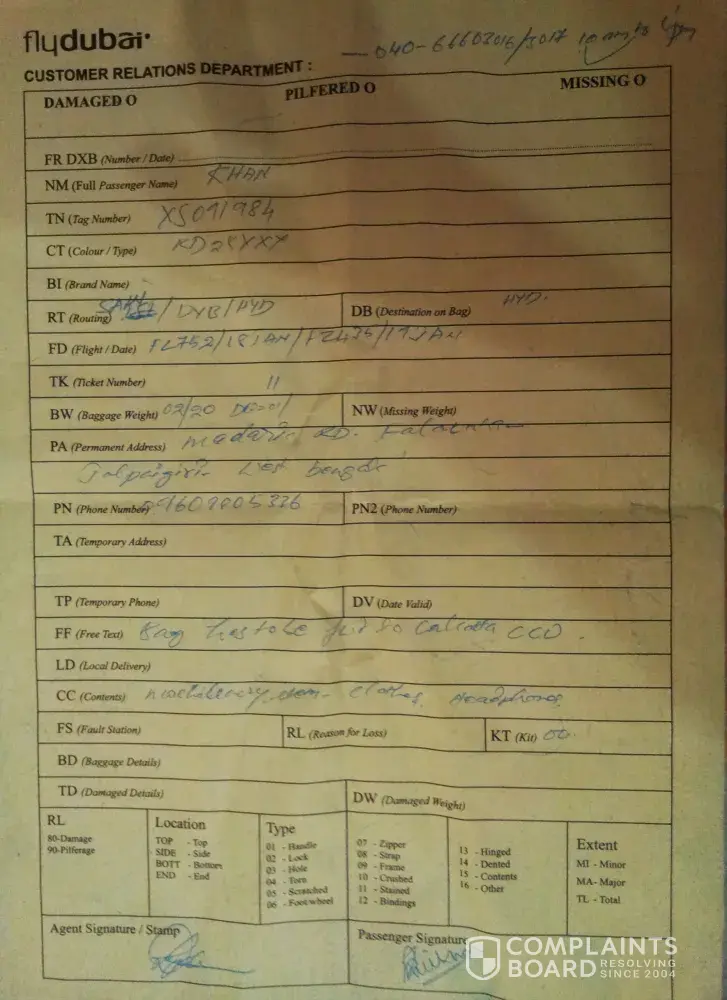 flydubai
040-66603016/3017 10 am to
CUSTOMER RELATIONS DEPARTMENT :
DAMAGED O PILFERED O MISSING O
FR DXB (Number / Date)
NM (Full Passenger Name) KHAN
TN (Tag Number) XS091984
CT (Colour / Type) RD25YXX
BI (Brand Name)
RT (Routing) / DXB / HYD DB (Destination on Bag) HYD.
FD (Flight / Date) FZ752/18JAN/FZ435/19JAN
TK (Ticket Number) 11
BW (Baggage Weight) 02/20 NW (Missing Weight)
PA (Permanent Address) RD.
West bengal
PN (Phone Number) PN2 (Phone Number)
TA (Temporary Address)
TP (Temporary Phone) DV (Date Valid)
FF (Free Text) Bag has to be to Calcutta CCU.
LD (Local Delivery)
CC (Contents) clothes, Headphones
FS (Fault Station) RL (Reason for Loss) KT (Kit) 00
BD (Baggage Details)
TD (Damaged Details) DW (Damaged Weight)
RL Location Type Extent
80-Damage
90-Pilferage
TOP - Top
SIDE - Side
BOTT - Bottom
END - End
01 - Handle
02 - Lock
03 - Hole
04 - Torn
05 - Scratched
06 - Foot wheel
07 - Zipper
08 - Strap
09 - Frame
10 - Crushed
11 - Stained
12 - Bindings
13 - Hinged
14 - Dented
15 - Contents
16 - Other
MI - Minor
MA- Major
TL - Total
Agent Signature / Stamp Passenger Signature
COMPLAINTS
BOARD RESOLVING
SINCE 2004